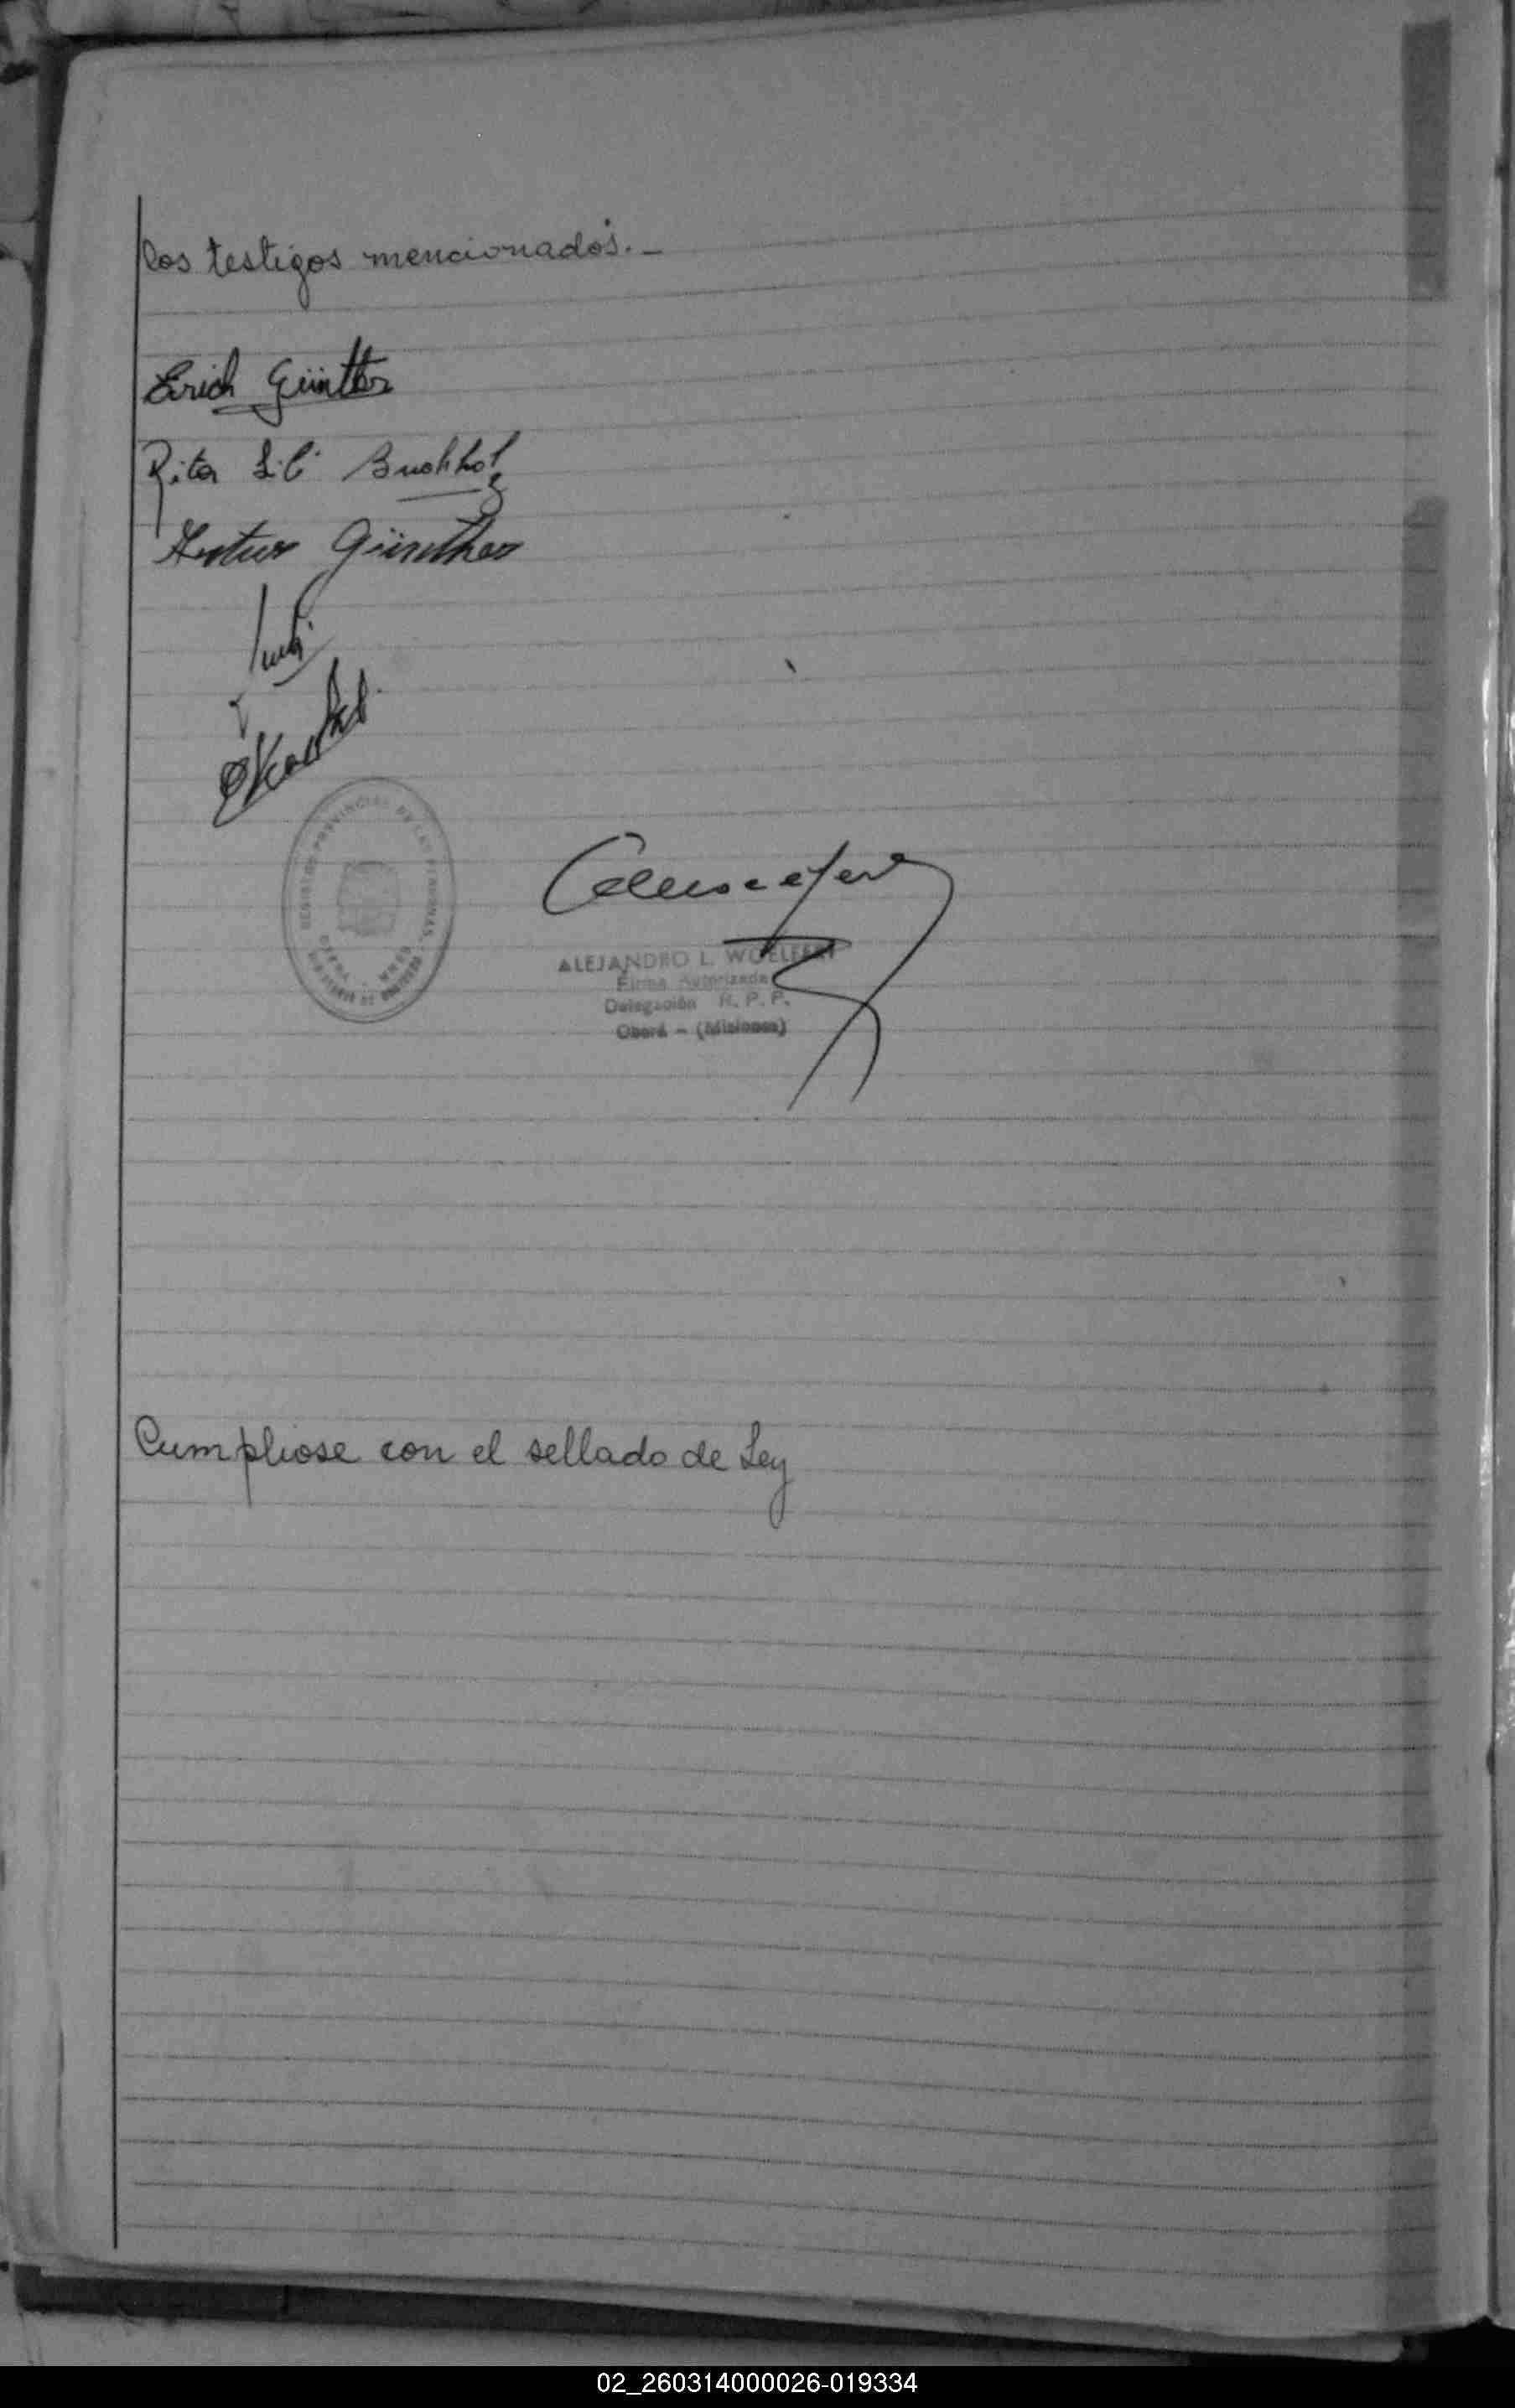 los testigos mencionados.-
Erich Günther
Rita Buchholz
Artur Günther
REGISTRO PROVINCIAL DE LAS PERSONAS
ALEJANDRO L. WOELFERT
Firma Autorizada
Delegación R. P. P.
Oberá - (Misiones)
Cumpliose con el sellado de Ley
02_260314000026-019334